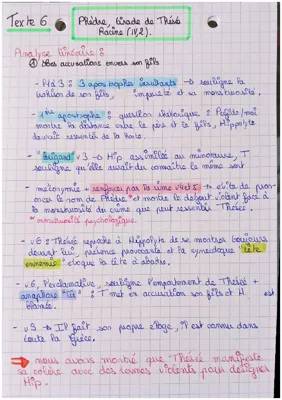 Texte 6
Phèdre, tirade de Thésée
Racine (IV,2).
Analyse linéaire :
Ses accusations envers son fils
- 1 à 3 : 3 apostrophes insultants → souligne la
trahison de son fils, impureté et sa monstruosité.
- 1ère apostrophe : question rhétorique : Perfide/moi
montre la distance entre le père et le fils, Hippolyte
aurait ressentir de la honte.
- "brigand" v3 → Hip assimilé au minotaure, T
souligne qu'elle aurait dû connaître le même sort
- métonymie + renforcé par la rime v4et5 → évite de pro-
noncer le nom de Phèdre et montre le dégout violent face à
la monstruosité du crime que peut ressentir Thésée.
monstruosité psychologique.
- v6 : Thésée reproche à Hippolyte de se montrer toujours
devant lui, présence provocante et la synecdoque "tête
ennemie" évoque la tête à abattre.
- v6, exclamative, souligne l'emportement de Thésée +
anaphore "tu" : T met en accusation son fils et H est
blamée.
- v9 → IP fait son propre éloge, il est connu dans
toute la Grèce.
⇒ nous avons montré que Thésée manifeste
sa colère avec des termes violents pour désigner
Hip.